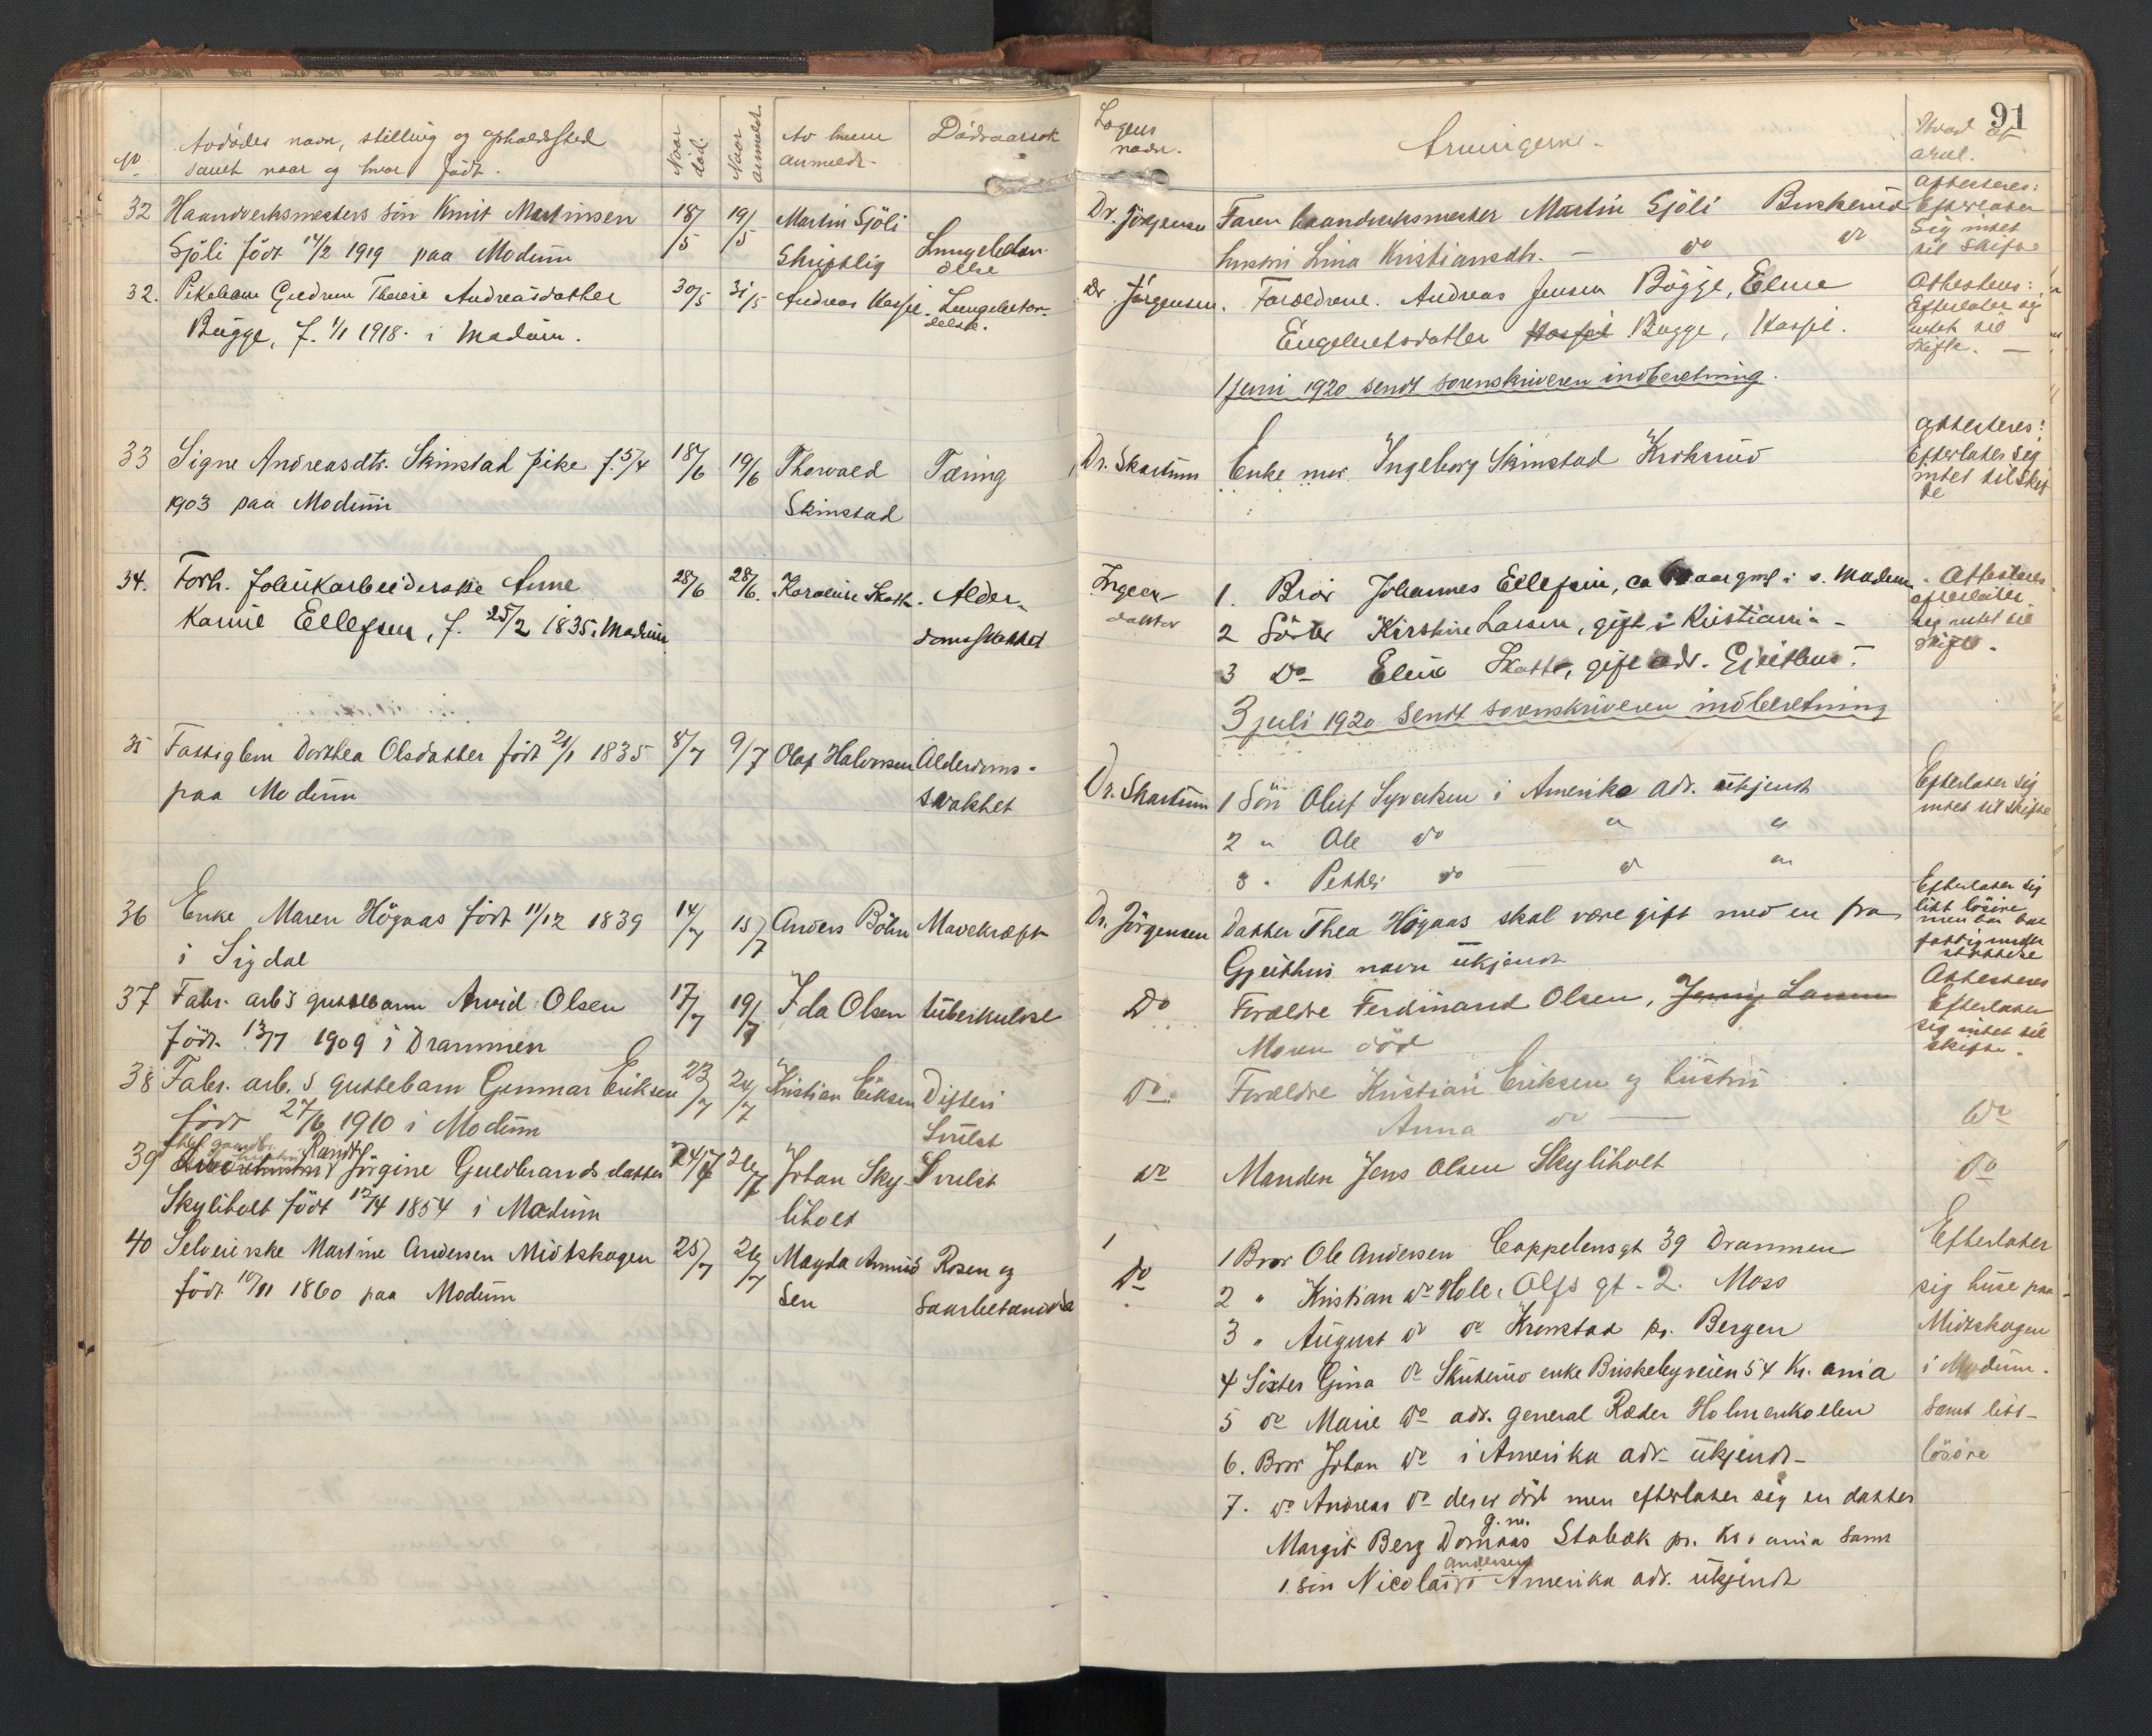 No
Avdödes navn, stilling og opholdssted
samt naar og hvor födt.
Naar död.
Naar anmeldt.
Av hvem
anmeldt
Dödsaarsak
32 Haandverksmesters sön Knut Martinsen 18/5 19/5 Martin Sjöli
Sjöli födt 14/2 1919 paa Modum Skriftlig Lungebetæn
delse
32. Pikebarn Gudrun Therese Andreasdatter 30/5 31/5 Andreas Kasfjé. Lungebetæn-
delse.
Bugge, f. 1/1 1918. i Modum.
33 Signe Andreasdtr. Skinstad pike f. 5/4 18/6 19/6 Thorvald Tæring
1903 paa Modum Skinstad
34. Forh. fabrikarbeiderske Anne 28/6 28/6. Karoline Skatt. Alder-
Karine Ellefsen, f. 25/2 1835. Modum domssvakhet
35 Fattiglem Dorthea Olsdatter födt 21/1 1835 8/7 9/7 Olaf Halvorsen Alderdoms-
paa Modum svakhet
36 Enke Maren Högaas födt 11/12 1839 14/7 15/7 Anders Böhn Mavekræft
i Sigdal
37 Fabr. arb's guttebarn Arvid Olsen 17/7 19/7 Ida Olsen tüberkulose
födt. 13/7 1909 i Drammen
38 Fabr. arb. s guttebarn Gunnar Eriksen 23/7 24/7 Kristian Eriksen Difteri
födt 27/6 1910 i Modum Svulst
39 Randi Jörgine Guldbrandsdatter 24/7 26/7 Johan Sky- Svulst
Skyliholt födt 12/4 1854 i Modum liholt
40 Selveierske Martine Andersen Midtskogen 25/7 26/7 Magda Amund Rosen og
födt 10/11 1860 paa Modum sen Saarbetændelse
91
Lægens
navn.
Arvingerne.
Hvad at
arve.
Dr. Jörgensen Faren haandverksmester Martin Sjöli Buskerud
hustru Lina Kristiansdtr. — do do
Attesteres:
Efterlater
sig intet
til skifte
Dr Jörgensen. Foreldrene. Andreas Jensen Bugge, Elene
Engebretsdatter Kasfjé Bugge, Kasfjé.
Attesteres:
Efterlater sig
intet til
skifte. —
1 juni 1920 sendt sorenskriveren indberetning.
Dr. Skartum Enke mor Ingeborg Skinstad Kroksrud
Attesteres:
Efterlater sig
intet til skif
te
1. Bror Johannes Ellefsen, ca aar gml i s. Modum
2 Söster Kirstine Larsen, gift i Kristiania -
3 Do Eline Skatt, gift adr. Gjeithus.
Attesteres
efterlater
sig intet til
skifte.
3 juli 1920 sendt sorenskriveren indberetning
Dr. Skartum 1 Sön Oluf Syvertsen i Amerika adr. ukjendt
2 " Ole do " "
3 " Petter do " "
Efterlater sig
intet til skifte
Dr. Jörgensen Datter Thea Högaas skal være gift med en fra
Gjeithus navn ukjendt
Efterlater sig
litt lösöre
men har hat
fattigunder
stöttelse
Do Forældre Ferdinand Olsen, Jenny Larsen
Maren död
Attesteres
Efterlater
sig intet til
skifte.
Do Forældre Kristian Eriksen og hustru
Anna do —
Do
Do Manden Jens Olsen Skyliholt Do
1
Do
1 Bror Ole Andersen Cappelensgt 39 Drammen
2 " Kristian do Hole, Olfs gt - 2. Moss
3 " August do do Kronstad pr. Bergen
4 Söster Gina do Skuterud enke Briskebyveien 54 Kr. ania
5 do Marie do adr. general Ræder Holmenkollen
6. Bror Johan do i Amerika adr ukjendt-
7. do Andreas do der er död men efterlater sig en datter
Margit Berg g. m. Domaas Stabæk pr. Kr. ania samt
1. sön Nicolai Andersen i Amerika adr. ukjendt
Efterlater
sig huse paa
Midtskogen
i Modum.
samt litt-
lösöre